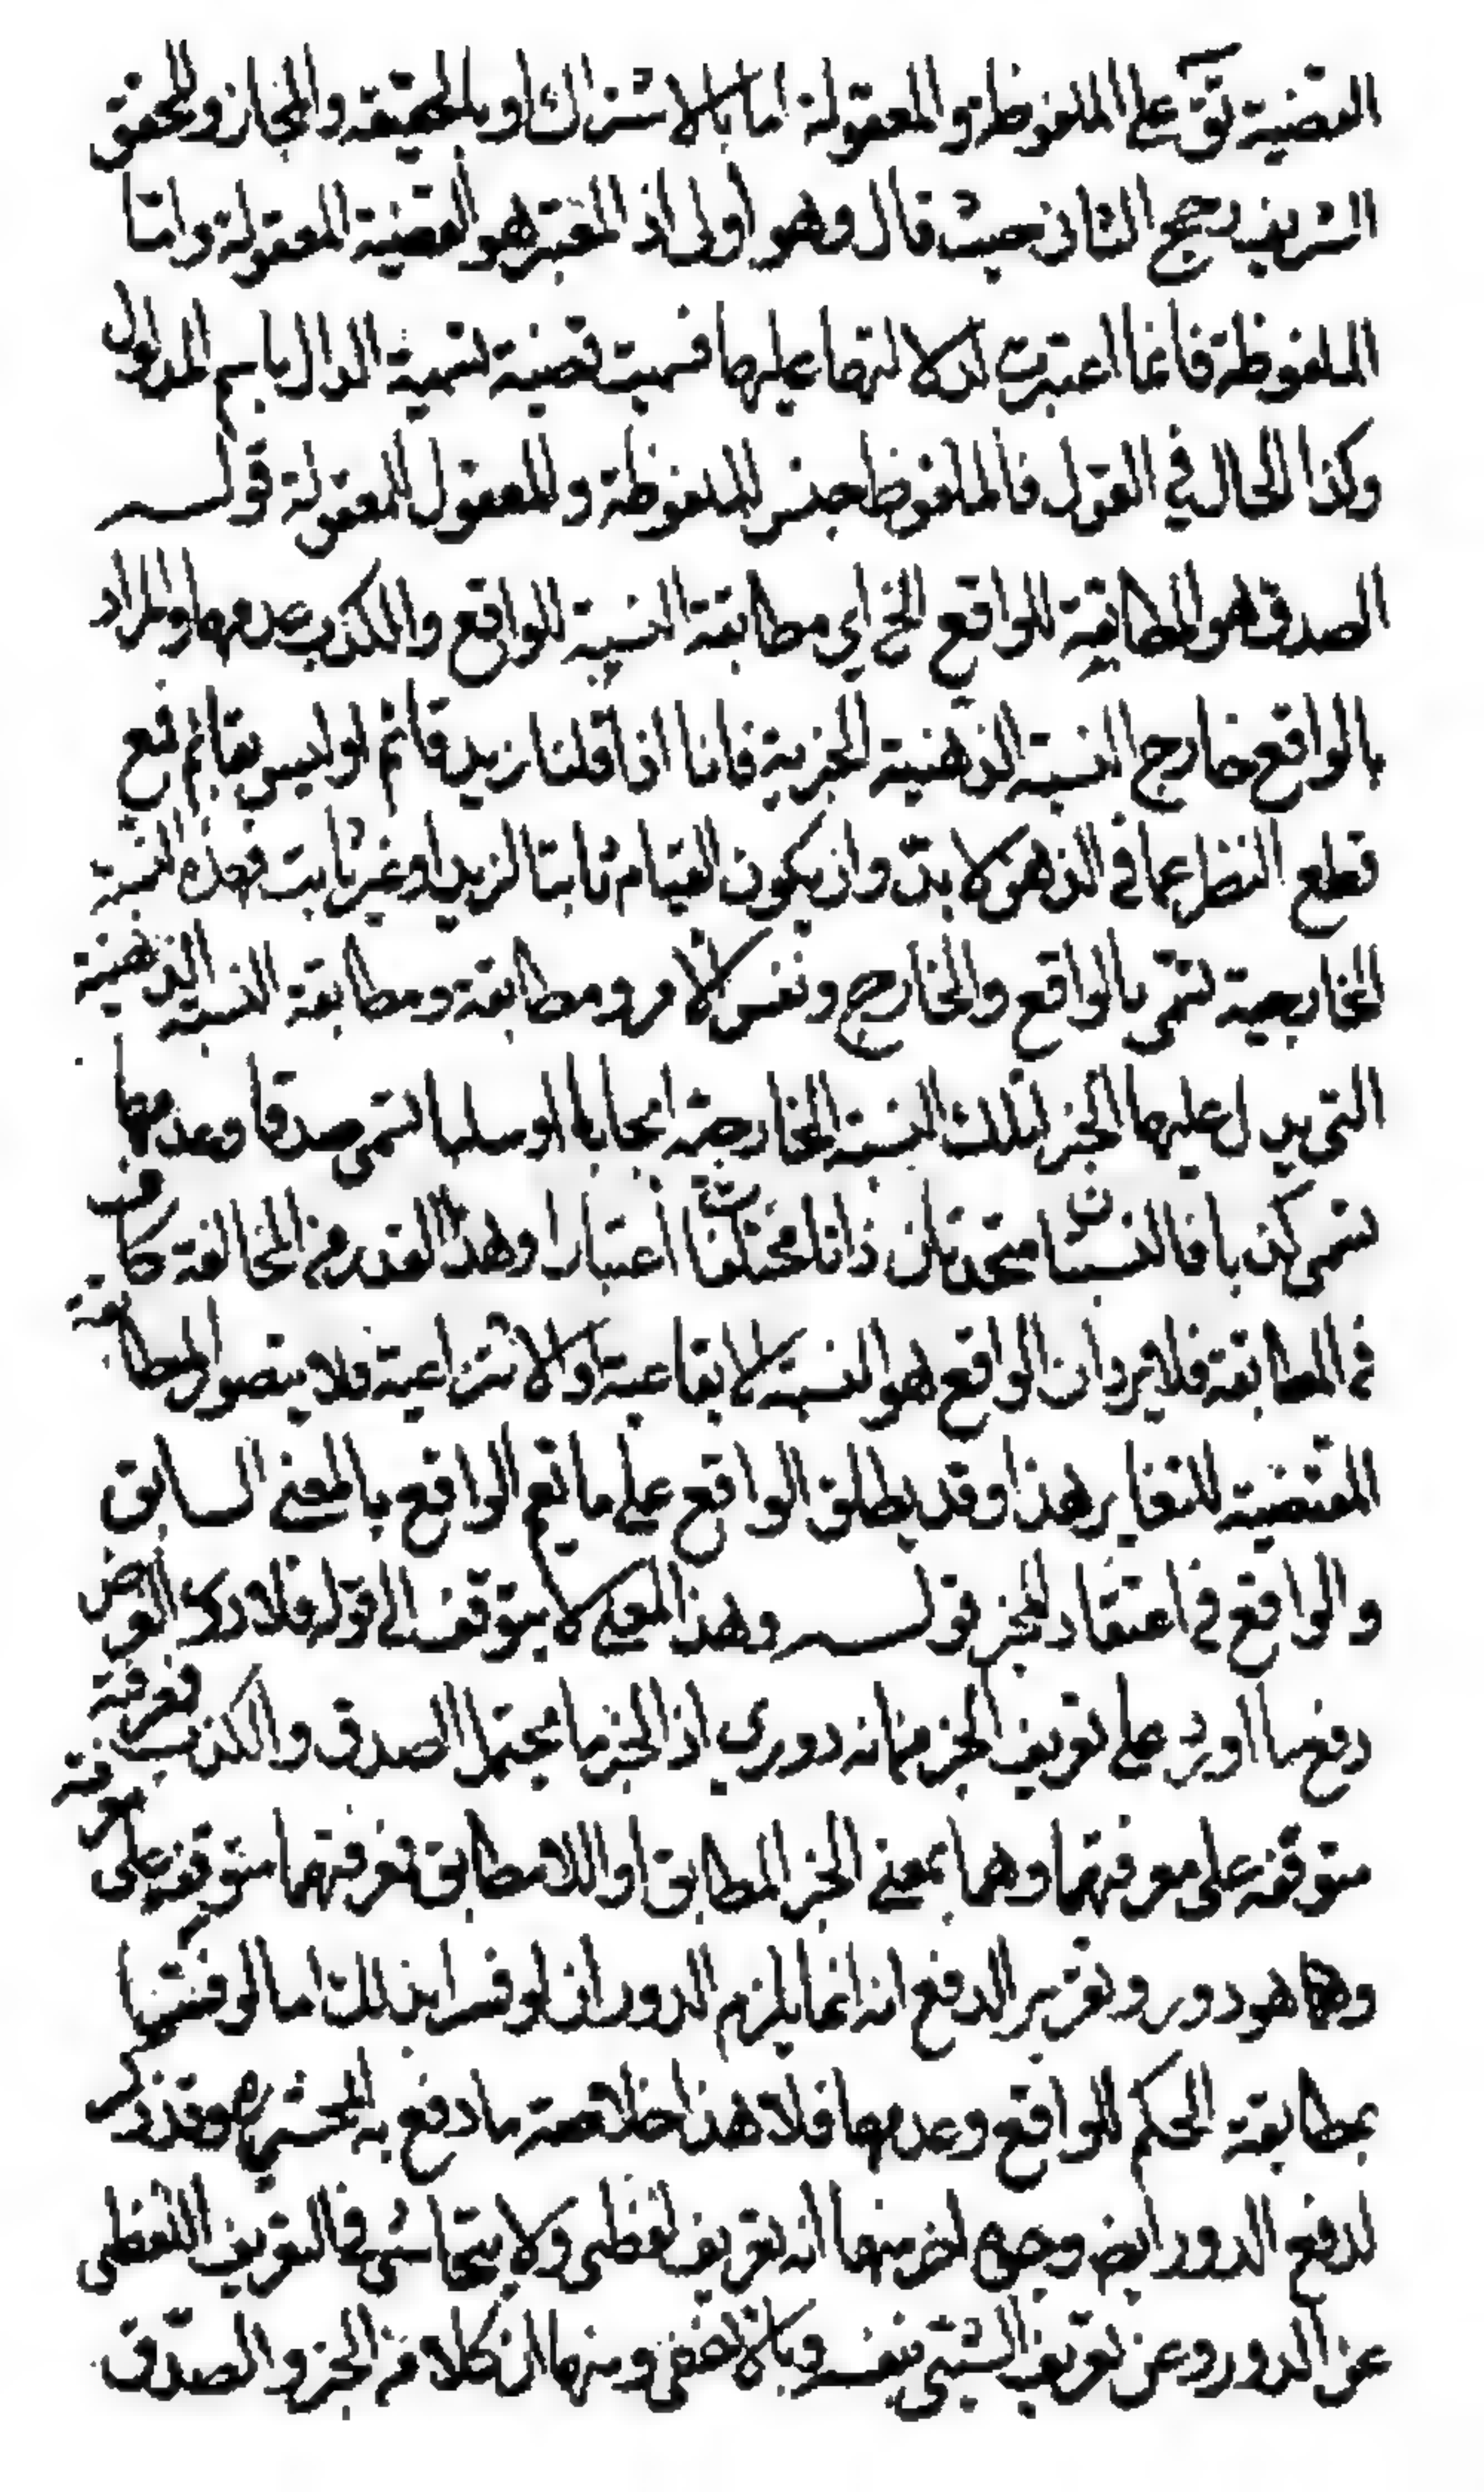 القضية تق على الملفوظة والمعقولة اما بالاشتراك او بالحقيقة والمجاز والمحقق
الشريف رجح الثاني حيث قال وهو أولى اذ المعتبر هو القضية المعقولة واما
الملفوظة فانما اعتبرت لدلالتها عليها فسميت قضية تسمية الدال باسم المدلول
وكذا الحال في القول فالملفوظ جنس للملفوظة والمعقول للمعقولة قوله
الصدق هو المطابقة للواقع الخ اي مطابقة النسبة للواقع والكذب عدمها والمراد
بالواقع خارج النسبة الذهنية الخبرية فانا اذا قلنا زيد قائم او ليس بقائم فمع
قطع النظر عما في الذهن لا بد وان يكون القيام ثابتا لزيد او غير ثابت فهذه النسبة
الخارجية تسمى بالواقع والخارج ونفس الامر ومطابقة ومطابقة النسبة الذهنية
التي يدل عليها الخبر لتلك النسبة الخارجية ايجابا او سلبا تسمى صدقا وعدمها
تسمى كذبا فالنسبتان متحدتان ذاتا مختلفتان اعتبارا وهذا القدر من المخالفة كاف
في المطابقة فلا يرد ان الواقع هو النسبة الايقاعية او الانتزاعية فلا يتصور المطابقة
المقتضية للتغاير هذا وقد يطلق الواقع على ما يعم الواقع بالمعنى السابق
والواقع في اعتقاد المخبر قوله وهذا المعنى لا يتوقف الى قوله فلا دور الغرض
دفع ما اورد على تعريف الخبر من انه دوري اذ الخبر ما يحتمل الصدق والكذب فمعرفته
متوقفة على معرفتهما وهما بمعنى الخبر المطابق او اللامطابق فمعرفتهما متوقفة على معرفته
وهل هو دور وتقرير الدفع انه انما يلزم الدور ان لو فسرا بذلك اما لو فسرا
بمطابقة الحكم للواقع وعدمها فلا هذا خلاصة ما دفع به المحشي وقد ذكر
لدفع الدور ايض وجوه اخر منها انه تعريف لفظي ولا يتحاشى في التعريف اللفظي
عن الدور وعن تعريف الشيء بنفسه وبالاخفى ومنها ان كلا من الخبر والصدق